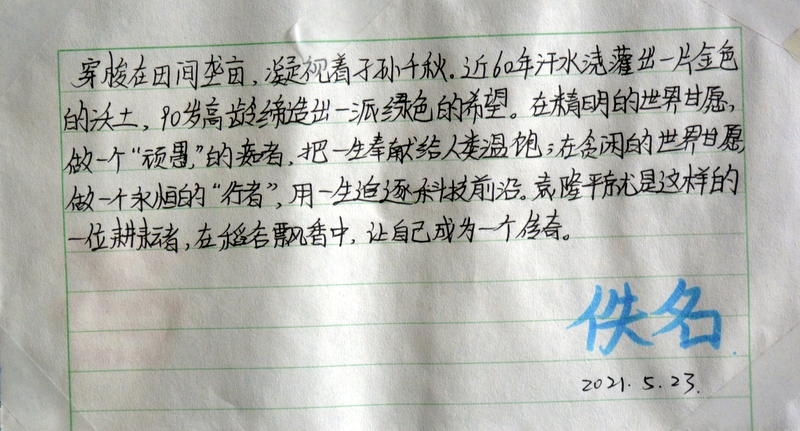 穿梭在田间垄亩，凝视着子孙千秋。近60年汗水浇灌出一片金色
的沃土，90岁高龄缔造出一派绿色的希望。在精明的世界甘愿，
做一个“顽愚”的痴者，把一生奉献给人类温饱；在贪闲的世界甘愿，
做一个永恒的“行者”，用一生追逐科技前沿。袁隆平就是这样的
一位耕耘者，在稻谷飘香中，让自己成为一个传奇。
佚名
2021.5.23.